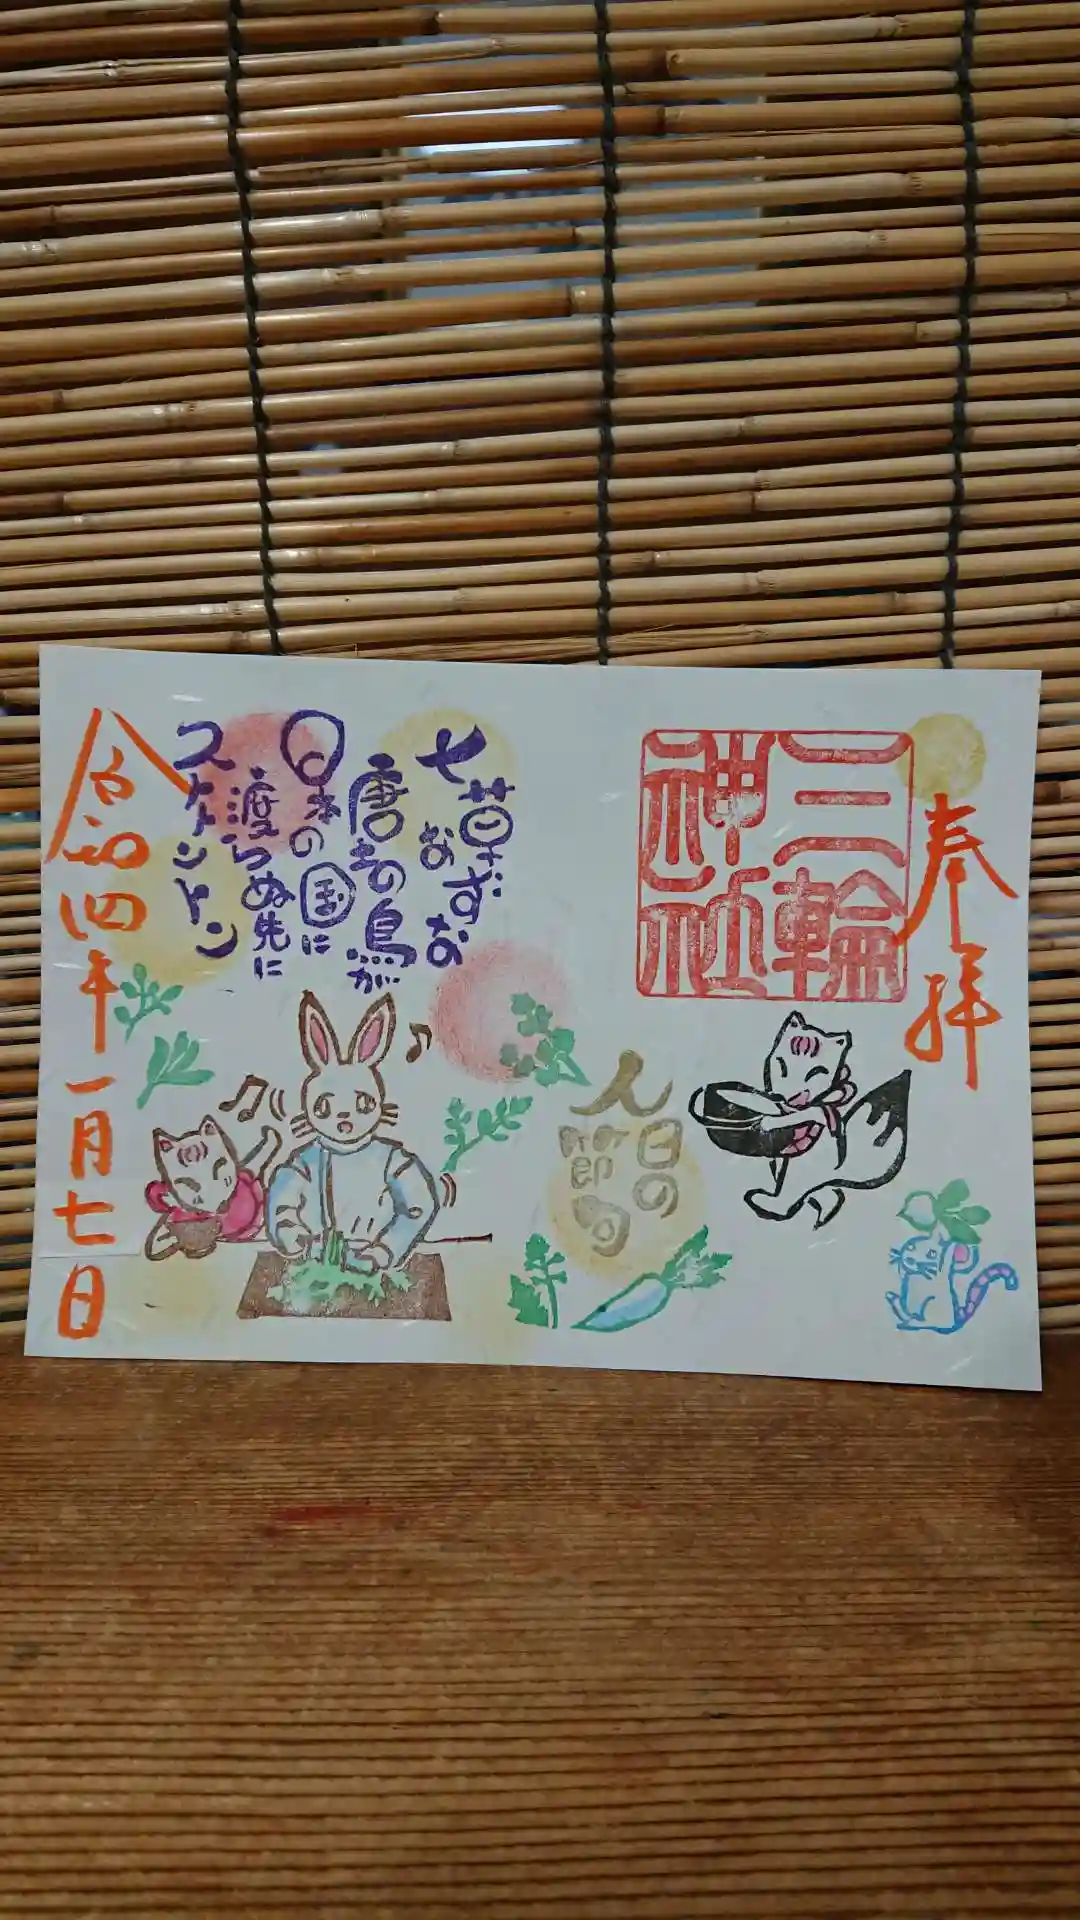 奉拝
三輪
神社
人日の
節句
七草なずな
唐土の鳥が
日本の国に
渡らぬ先に
ストトントン
令和四年一月七日